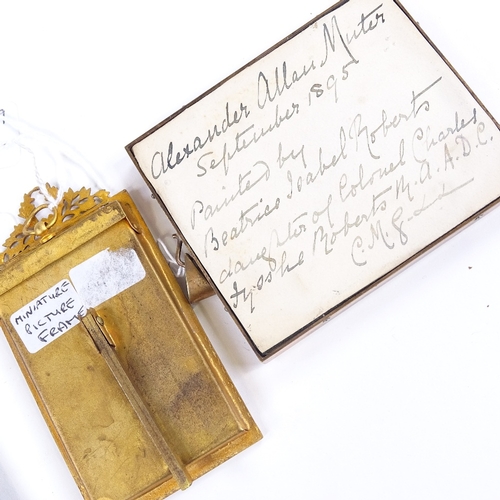 Alexander Allan Muter
September 1895
Painted by
Beatrice Isabel Roberts
daughter of Colonel Charles
Fyshe Roberts R.A. A.D.C.
C.M.G.
MINIATURE
PICTURE
FRAME